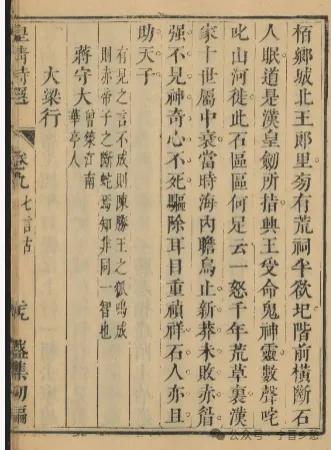 栢鄉城北王郎里旁有荒祠半欲圮階前橫斷石
人眠道是漢皇劒所指興王受命鬼神靈數聲咤
叱山河徙此石區區何足云一怒千年荒草裏漢
家十世屬中衰當時海内瞻烏止新莽未敗赤眉
强不見神奇心不死驅除耳目重禎祥石人亦且
助天子
有見之言不成則陳勝王之狐鳴成
則赤帝子之斷蛇焉知非同一智也
蔣守大
曾策江南
華亭人
大梁行
皇清詩選
卷九 七言古
盛集初編
公众号